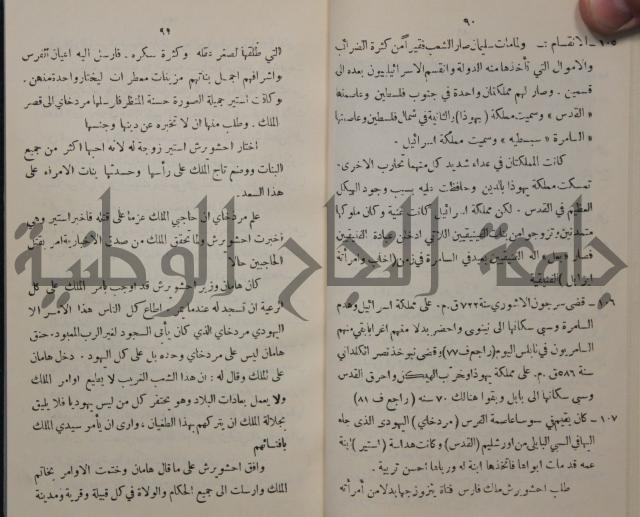 ٩٠
١٠٥ - الانقسام :- ولما مات سليمان صار الشعب فقيراً من كثرة الضرائب
والاموال التي تأخذها منه الدولة وانقسم الاسرائيليون بعده الى
قسمين . وصار لهم مملكتان واحدة في جنوب فلسطين وعاصمتها
« القدس » وسميت مملكة ( يهوذا ) والثانية في شمال فلسطين وعاصمتها
« السامرة » سبسطيه » وسميت مملكة اسرائيل .
كانت المملكتان في عداء شديد كل منهما تحارب الاخرى .
تمسكت مملكة يهوذا بالدين وحافظت عليه بسبب وجود الهيكل
العظيم في القدس . لكن مملكة اسرائيل كانت غنية وكان ملوكها
متمدنين وتزوجوا من بنات الفينيقيين اللاتي ادخلن عبادة الفنيقيين
فصار « بعل » اله الفنيقيين يعبد في السامرة في زمن ( اخاب وامرأته
ايزابل ) الفنيقية
١٠٦ - قضى سرجون الاشوري سنة ٧٢٢ ق . م . على مملكة اسرائيل وهدم
السامرة وسبى سكانها الى نينوى واحضر بدلا منهم اغرابا بقي منهم
السامريون في نابلس اليوم ( راجع ف ٧٧ ) وقضى نبوخذ نصر الكلداني
سنة ٥٨٦ ق . م . على مملكة يهوذا وخرب الهيكل واحرق القدس
وسبى سكانها الى بابل وبقوا هنالك ٧٠ سنه ( راجع ف ٨١ )
١٠٧ - كان يقيم في سوسا عاصمة الفرس ( مردخاي ) اليهودى الذى جاء
اليها في السبي البابلي من اورشليم ( القدس ) وكانت هداسة ( استير ) ابنة
عمه قد مات ابواها فاتخذها ابنة له ورباها احسن تربية .
طلب احشويرش ملك فارس فتاة يتزوجها بدلا من امرأته
٩١
التي طلقها لصغر عقله وكثرة سكره . فارسل اليه اعيان الفرس
واشرافهم اجمل بناتهم مزينات معطرات ليختار واحدة منهن .
وكانت استير جميلة الصورة حسنة المنظر فارسلها مردخاي الى قصر
الملك . وطلب منها ان لا تخبره عن دينها وجنسها
اختار احشويرش استير زوجة له لانه احبها اكثر من جميع
البنات ووضع تاج الملك على رأسها وحسدتها بنات الامراء على
هذا السعد .
علم مردخاي ان حاجبي الملك عزما على قتله فاخبر استير وهي
اخبرت احشويرش ولما تحقق الملك من صدق الاخبارية امر بقتل
الحاجبين حالا
كان هامان وزير احشورش قد اوجب بامر الملك على كل
الرعية ان تسجد له عندما يمر . اطاع كل الناس هذا الامر الا
اليهودي مردخاي الذي كان يأبى السجود لغير الرب المعبود . حنق
هامان ليس على مردخاي وحده بل على كل اليهود . دخل هامان
على الملك وقال له : ان هذا الشعب الغريب لا يطيع اوامر الملك
ولا يعمل بعادات البلاد وهو يحتقر كل من ليس يهوديا فلا يليق
بجلالة الملك ان يتركهم بهذا الطغيان ، وارى ان يأمر سيدي الملك
بافنائهم
وافق احشويرش على ما قال هامان وختمت الاوامر بخاتم
الملك وارسلت الى جميع الحكام والولاة في كل قبيلة وقرية ومدينة
جامعة النجاح الوطنية